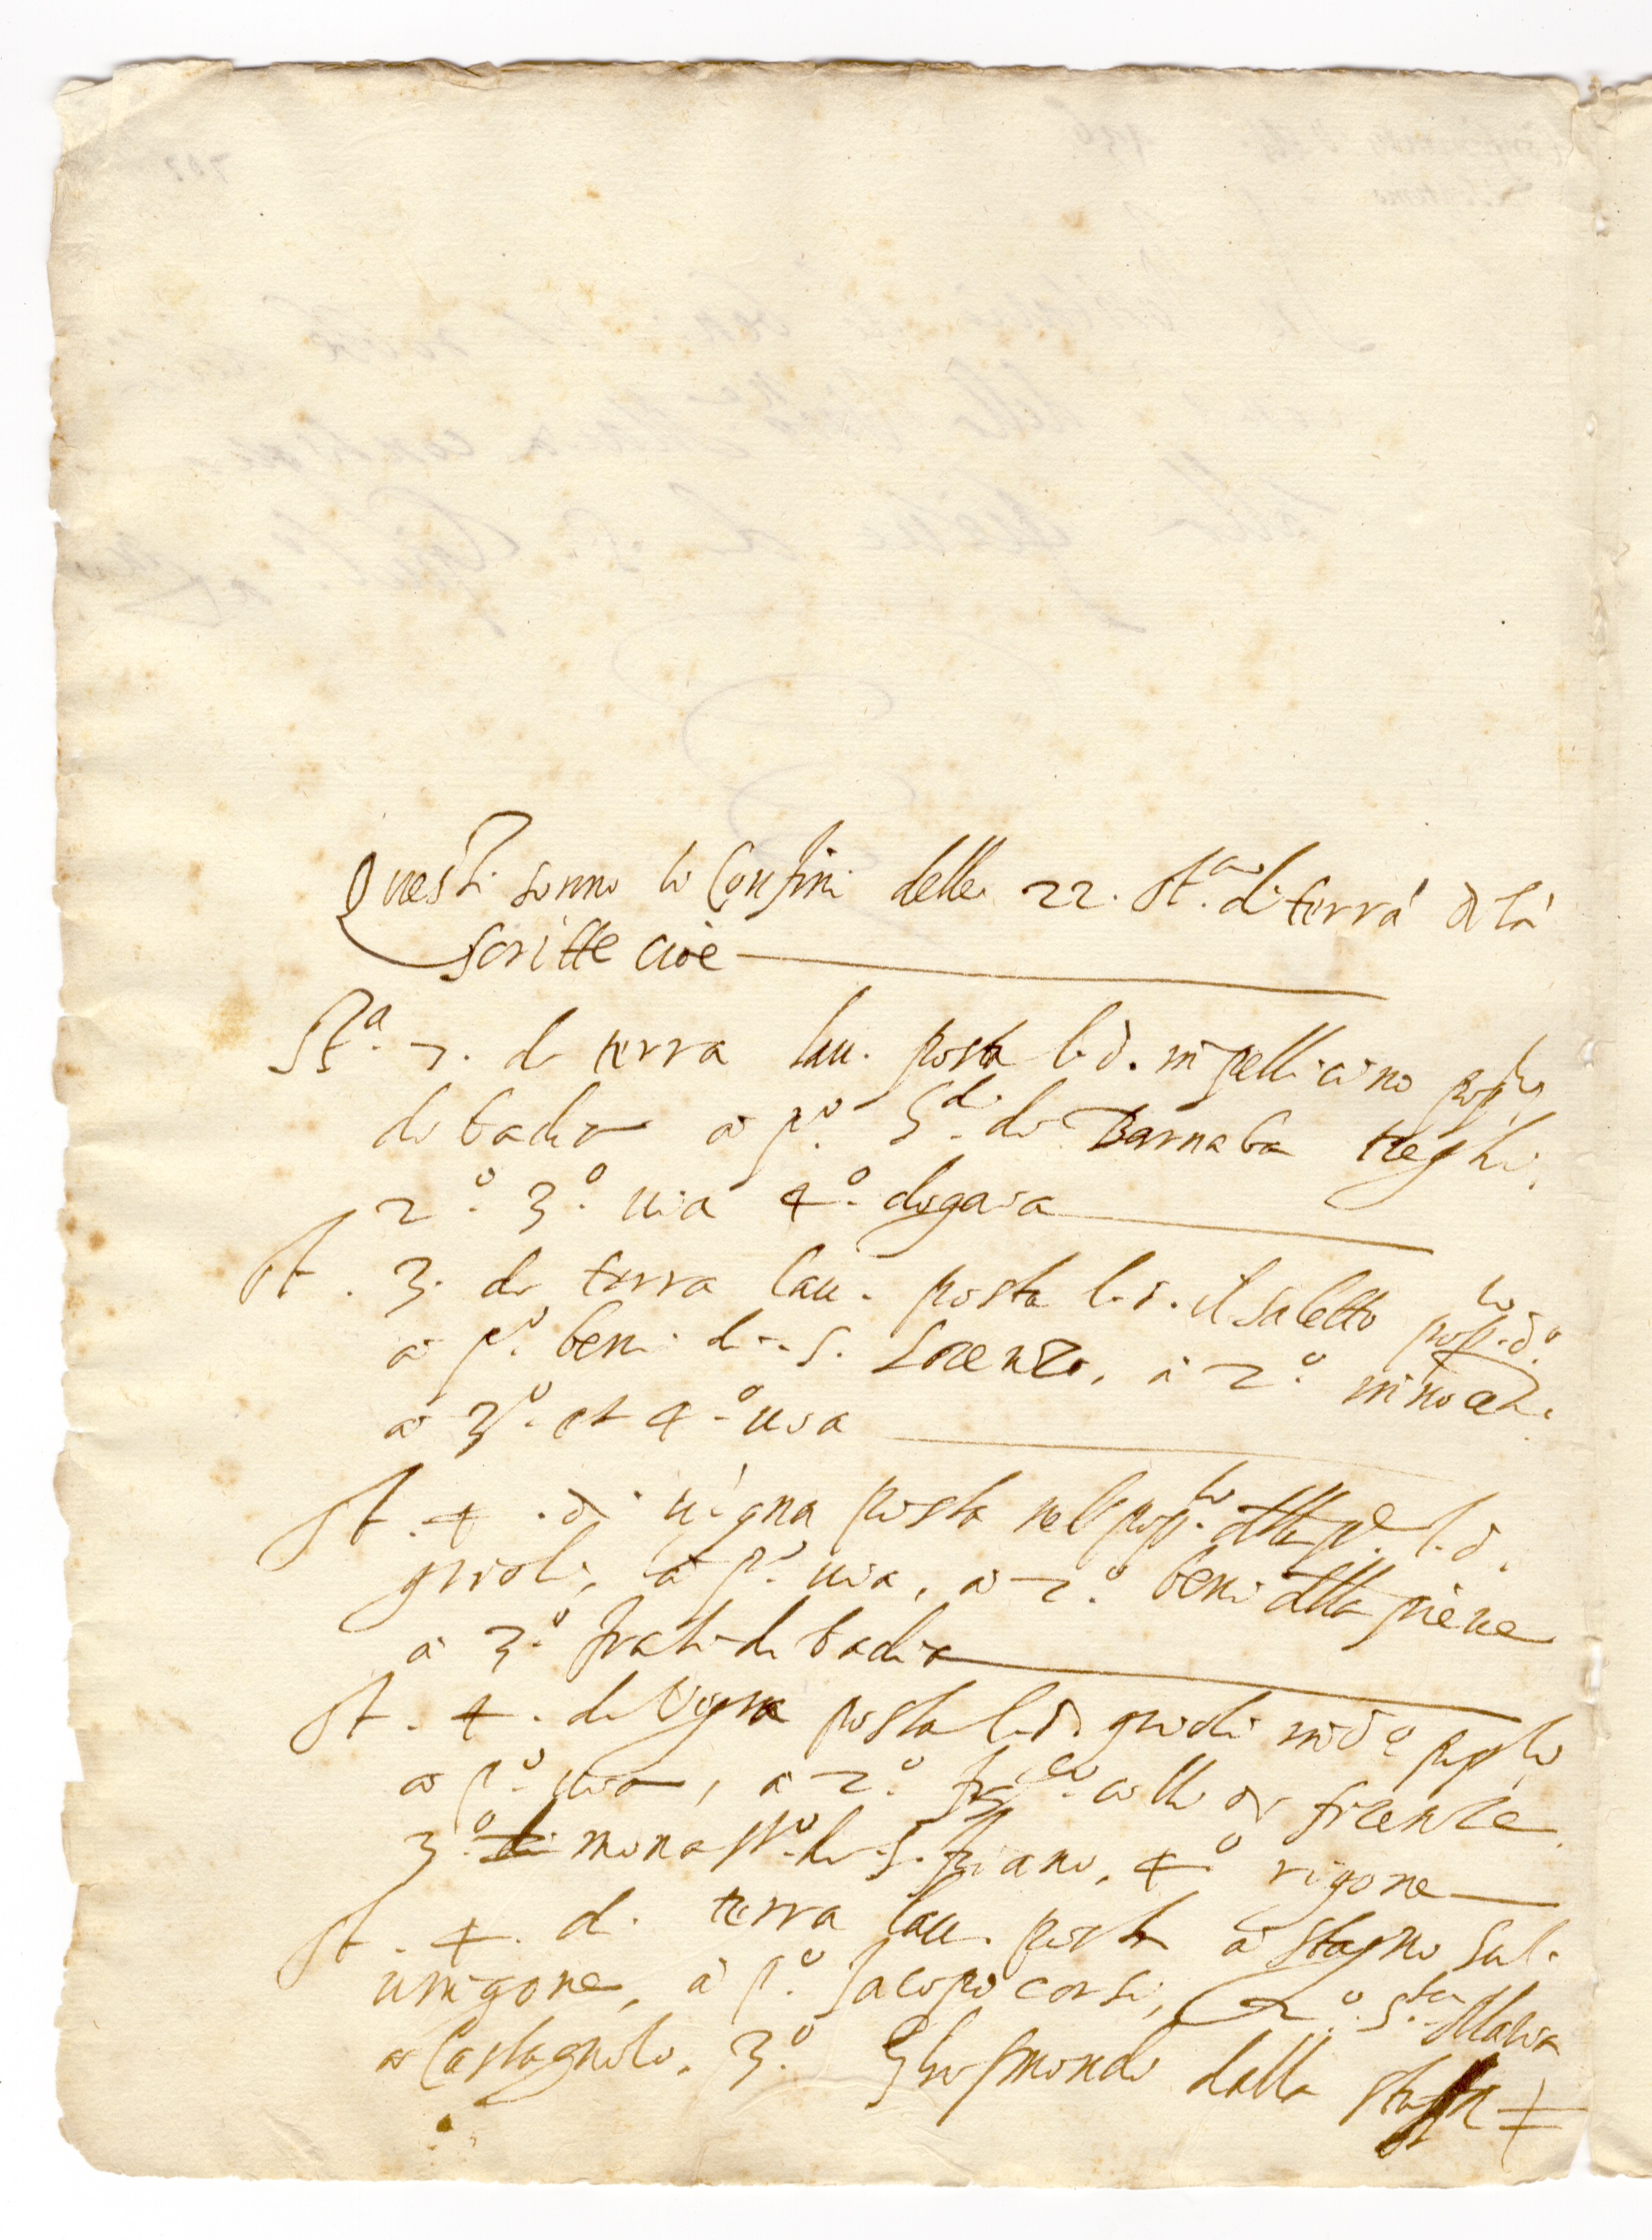 Questi sonno li Confini delle 22. st.ª di terra di là
scritte cioè
St.ª 7. di terra lau. posta l. d. in pellicino pop.lo
di badia a p.º S.di di Barnaba
2.º 3.º uia 4.º dogaia
St. 3. di terra lau. posta l. d. il saletto pop.lo d.º
a p.º beni di S. Lorenzo, a 2.º
a 3.º et 4.º uia
St. 4. di uigna posta nel pop.lo della p.e l. d.
grioli, a p.º uia, a 2.º beni della pieue
a 3.º frati di badia
St. 4. di Vigna posta l. d. grioli in d.º pop.lo
a p.º uia, a 2.º fra.co di firenze
3.º monast.º di S. 4.º rigone
St. 4. di terra lau. posta a stagno sul.
uingone, a p.º Jacopo corsi, 2.º S.ta Maria
a Castagnolo, 3.º Ghismondo della stufa